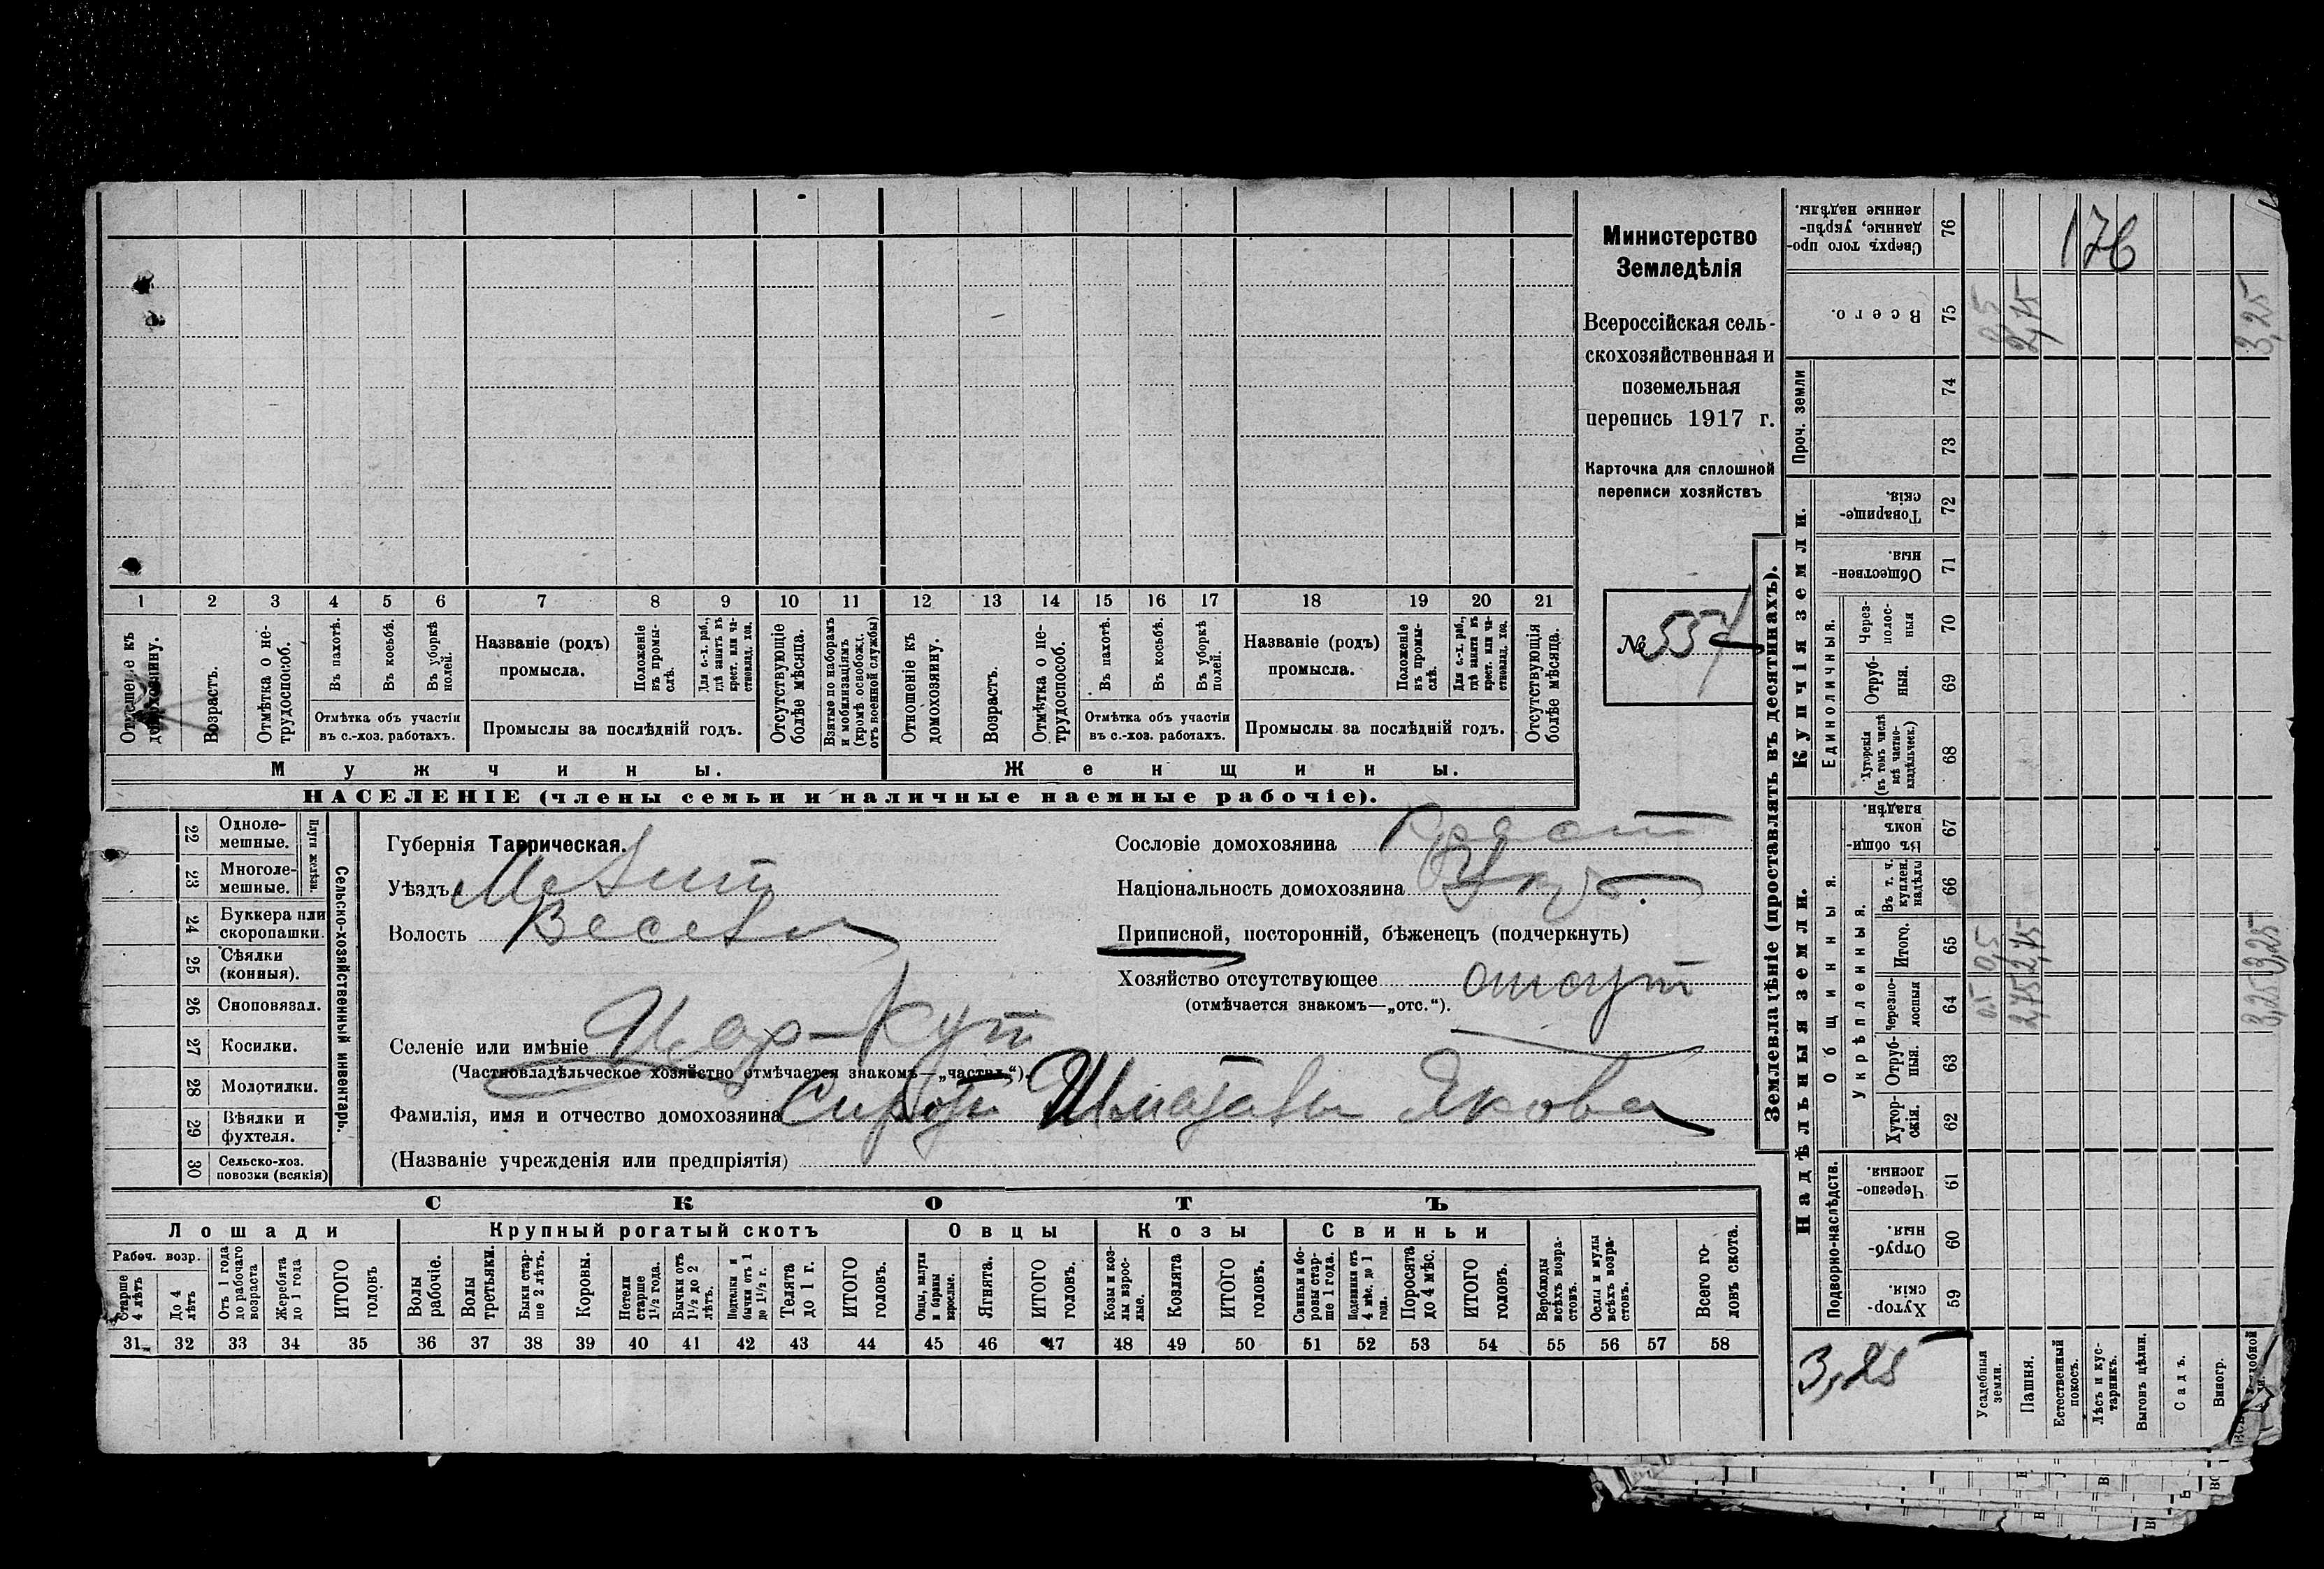 Министерство
Земледѣлія
Всероссійская сель-
скохозяйственная и
поземельная
перепись 1917 г.
Карточка для сплошной
переписи хозяйствъ
№ 557
1 2 3 4 5 6 7 8 9 10 11 12 13 14 15 16 17 18 19 20 21
Отношеніе къ домохозяину.
Возрастъ.
Отмѣтка о не-трудоспособ.
Въ пахотѣ.
Въ косьбѣ.
Въ уборкѣ полей.
Отмѣтка объ участіи
въ с.-хоз. работахъ.
Названіе (родъ)
промысла.
Положеніе въ промы-слѣ.
Для с.-х. раб., гдѣ занятъ въ крест. или ча-стновлад. хоз.
Промыслы за послѣдній годъ.
Отсутствующіе болѣе мѣсяца.
Взятые по наборамъ и мобилизаціямъ (кромѣ освобожд. отъ военной службы)
Отношеніе къ домохозяину.
Возрастъ.
Отмѣтка о не-трудоспособ.
Въ пахотѣ.
Въ косьбѣ.
Въ уборкѣ полей.
Отмѣтка объ участіи
въ с.-хоз. работахъ.
Названіе (родъ)
промысла.
Положеніе въ промы-слѣ.
Для с.-х. раб., гдѣ занята въ крест. или ча-стновлад. хоз.
Промыслы за послѣдній годъ.
Отсутствующія болѣе мѣсяца.
Мужчины.
Женщины.
НАСЕЛЕНІЕ (члены семьи и наличные наемные рабочіе).
Сельско-хозяйственный инвентарь.
Плуги желѣзн.
22 Одноле-мешные.
23 Многоле-мешные.
24 Буккера или скоропашки.
25 Сѣялки (конныя).
26 Сноповязал.
27 Косилки.
28 Молотилки.
29 Вѣялки и фухтеля.
30 Сельско-хоз. повозки (всякія)
Губернія Таврическая.
Уѣздъ Мелит
Волость Весел
Селеніе или имѣніе Цар-Кут
(Частновладѣльческое хозяйство отмѣчается знакомъ—„частвл.“).
Фамилія, имя и отчество домохозяина Сирота Яковл
(Названіе учрежденія или предпріятія)
Сословіе домохозяина Крест
Національность домохозяина Укр
Приписной, посторонній, бѣженецъ (подчеркнуть)
Хозяйство отсутствующее отсут
(отмѣчается знакомъ—„отс.“).
СКОТЪ
Лошади
Крупный рогатый скотъ
Овцы
Козы
Свиньи
Рабоч. возр.
Старше 4 лѣтъ
До 4 лѣтъ
Отъ 1 года до рабочаго возраста
Жеребята до 1 года
ИТОГО головъ
Волы рабочіе.
Волы третьяки.
Быки стар-ше 2 лѣтъ.
Коровы.
Петели старше 1½ года.
Бычки отъ 1½ до 2 лѣтъ.
Подтелки и бычки отъ 1 до 1½ г.
Телята до 1 г.
ИТОГО головъ.
Овцы, валухи и бараны взрослые.
Ягнята.
ИТОГО головъ.
Козы и коз-лы взрос-лые.
Козлята
ИТОГО головъ.
Свиньи и бо-ровы стар-ше 1 года.
Подсвинки отъ 4 мѣс. до 1 года.
Поросята до 4 мѣс.
ИТОГО головъ.
Верблюды всѣхъ возра-стовъ.
Ослы и мулы всѣхъ возра-стовъ.
Всего го-ловъ скота.
31 32 33 34 35 36 37 38 39 40 41 42 43 44 45 46 47 48 49 50 51 52 53 54 55 56 57 58
Землевладѣніе (проставлять въ десятинахъ).
Надѣльныя земли.
Купчія земли.
Проч. земли
Подворно-наслѣдств.
Общинныя.
Укрѣпленныя.
Единоличныя.
59 Хутор-скія.
60 Отруб-ныя.
61 Черезпо-лосныя.
62 Хутор-скія.
63 Отруб-ныя.
64 Черезпо-лосныя
65 Итого.
66 Въ т. ч. куплен. надѣлы
67 Въ общин-номъ владѣн.
68 Хуторскія (въ томъ числѣ всѣ частно-владѣльческ.)
69 Отруб-ныя.
70 Через-полос-ныя
71 Обществен-ныя.
72 Товарище-скія.
73
74
75 Всего.
76 Сверхъ того про-данные, укрѣп-ленные надѣлы.
Усадебныя земли.
Пашня.
Естественный покосъ.
Лѣсъ и кус-тарникъ.
Выгонъ цѣлин.
Садъ.
Виногр.
3,25
0,5 0,5 0,5
2,75 2,75 2,75
3,25 3,25 3,25
176